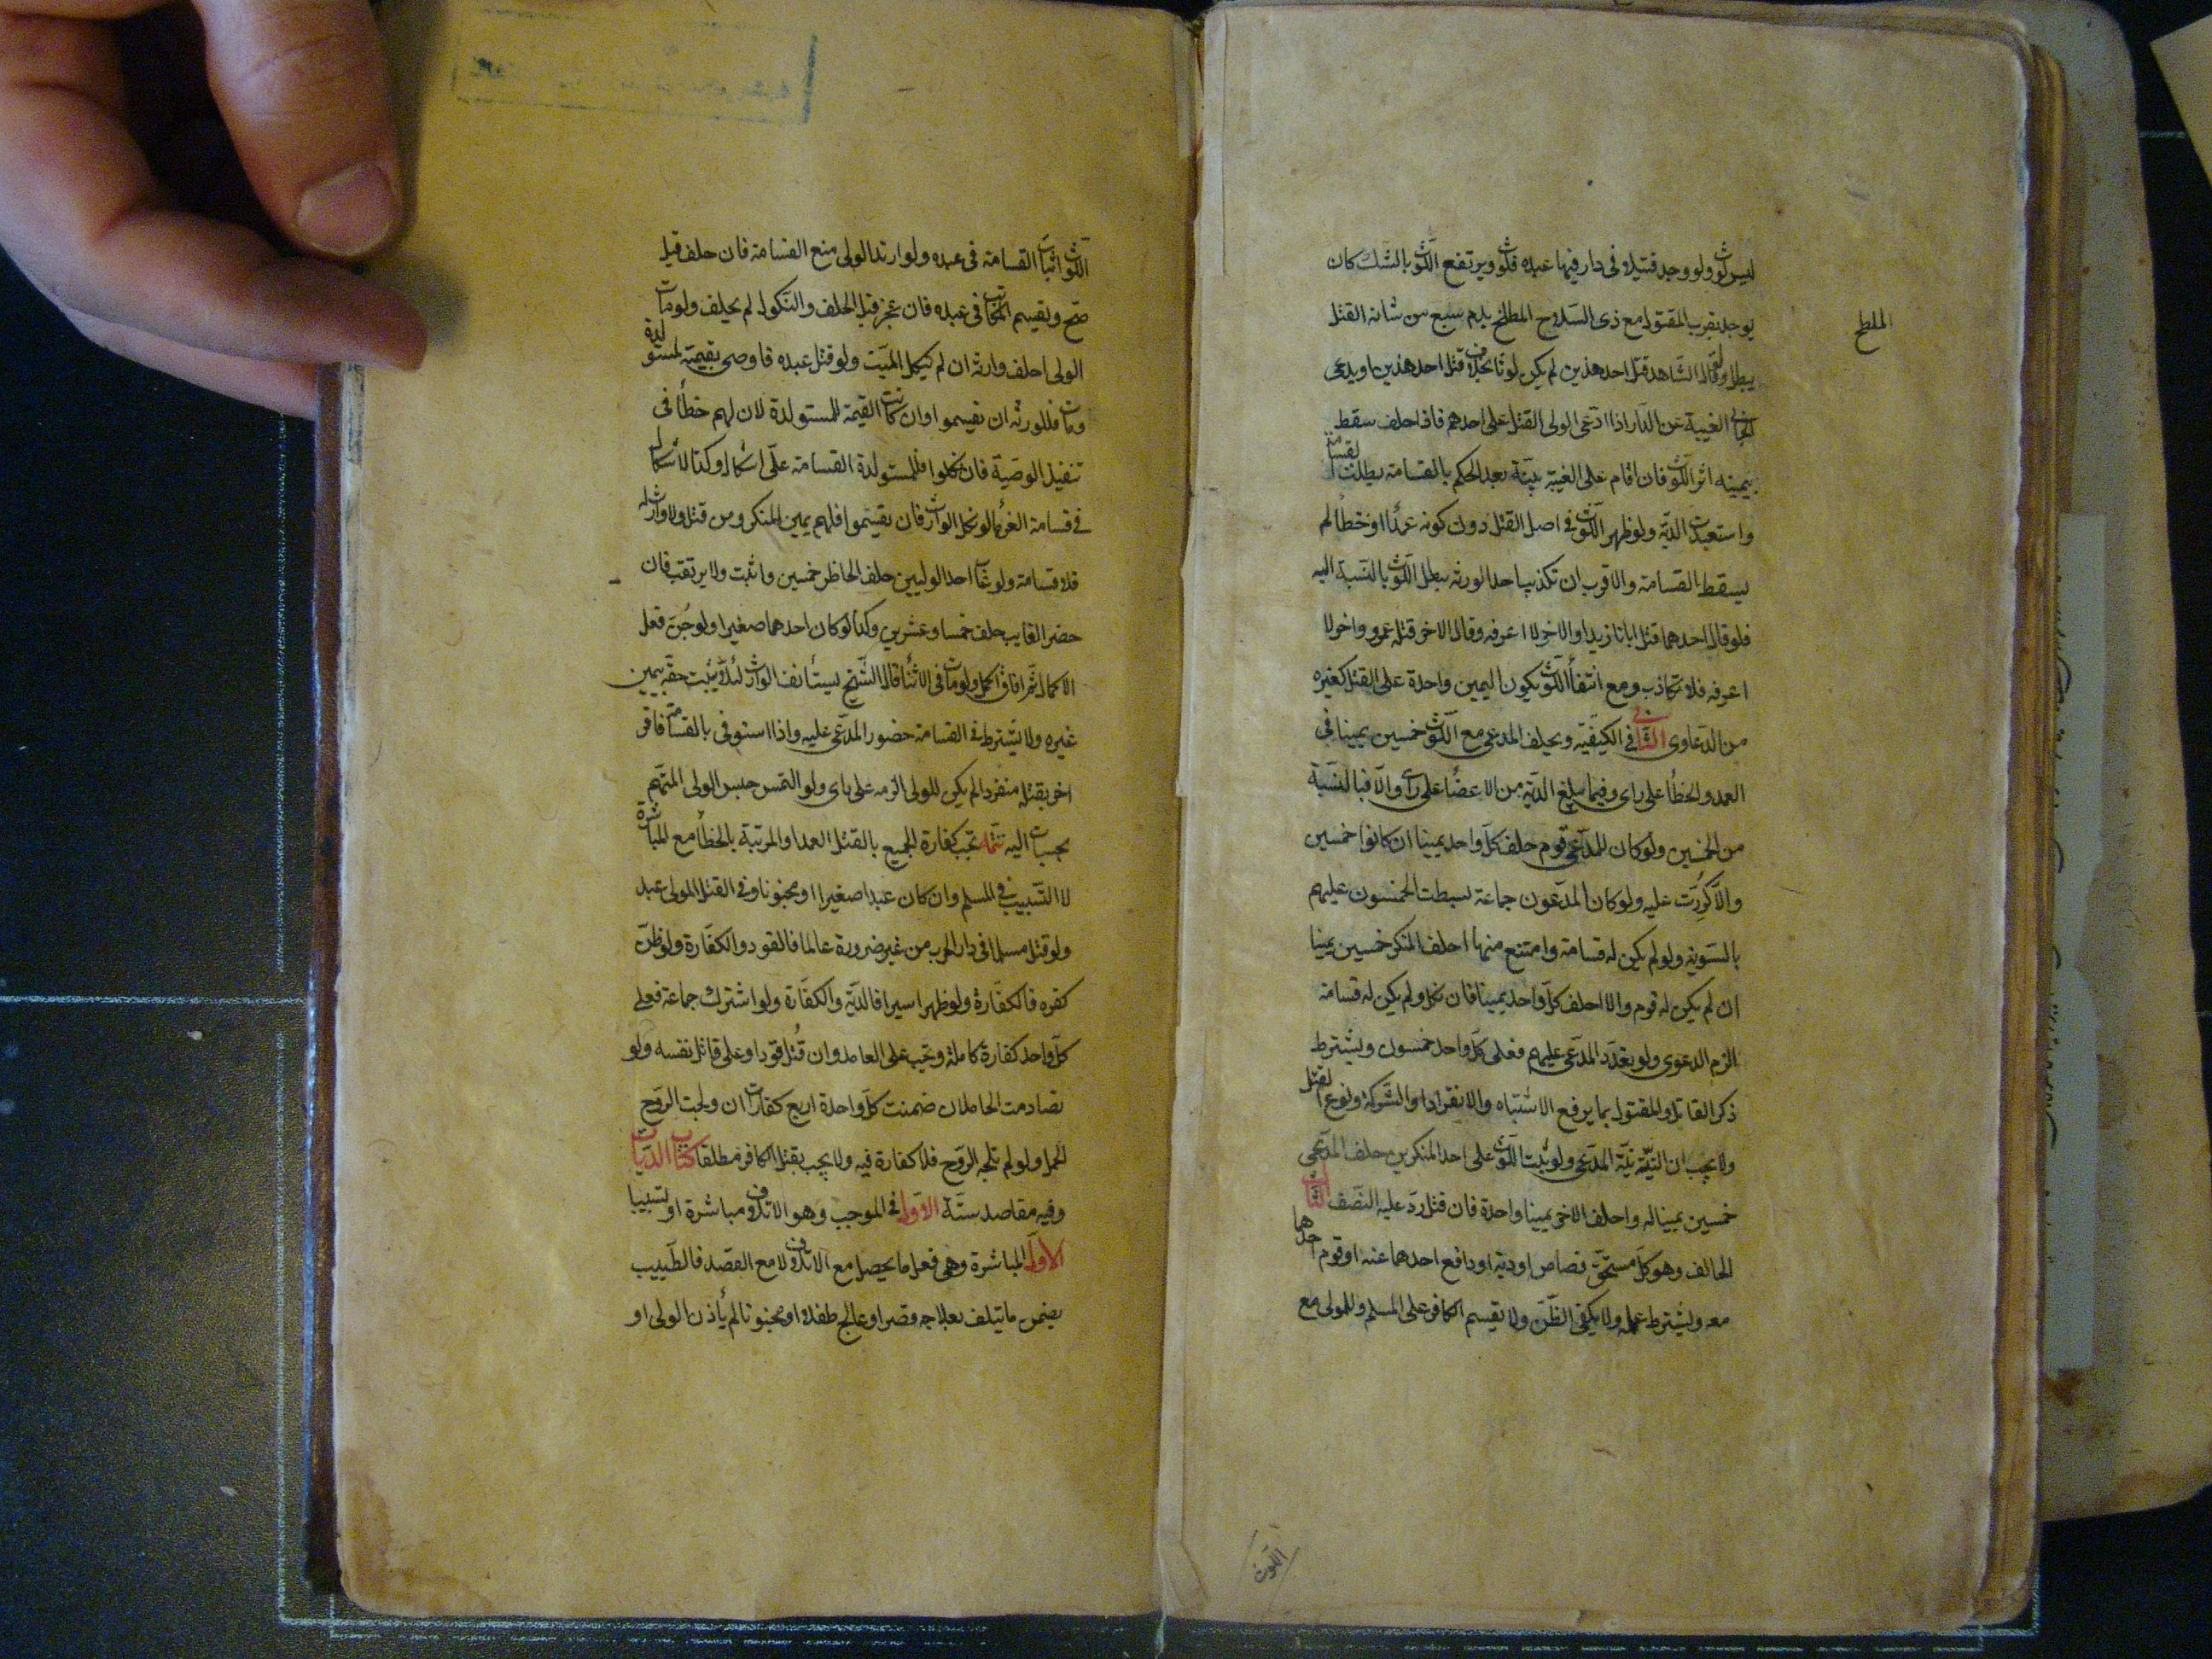 ليس لوث ولو وجد قتيلا فى دار فيها عبده فلوث ويرتفع اللوث بالشك كان
يوجد بقرب المقتول مع ذى السلاح المطلخ بدم سبع من شانه القتل
الملطخ
يبطل ولو قال الشاهد قتل احد هذين لم يكن لوثا بخلاف قتل احد هذين او يدعى
الجانى الغيبة عن الدار اذا ادعى الولى القتل على احدهم فاذا حلف سقط
بيمينه اثر اللوث فان اقام على الغيبة بينة بعد الحكم بالقسامة بطلت القسامة
واستعيدت الدية ولو ظهر اللوث فى اصل القتل دون كونه عمدا او خطأ لم
يسقط القسامة والاقرب ان تكذيب احد الورثه يبطل اللوث بالنسبة اليه
فلو قال احدهما قتل ابانا زيد او الاخر لا اعرفه وقال الاخر قتله عمرو واخر لا
اعرفه فلا تكاذب ومع انتفأ اللوث يكون اليمين واحدة على القتل كغيره
من الدعاوى الثانى فى الكيفيه ويحلف المدعى مع اللوث خمسين يمينا فى
العمد والخطأ على راى وفيما يبلغ الديه من الاعضا على راى والا فبالنسبة
من الخمسين ولو كان للمدعى قوم حلف كل واحد يمينا ان كانوا خمسين
والا كررت عليه ولو كان المدعون جماعة بسطت الخمسون عليهم
بالسويه ولو لم يكن له قسامة وامتنع منها احلف المنكر خمسين يمينا
ان لم يكن له قوم والا احلف كل واحد يمينا فان نكل ولم يكن له قسامة
الزم الدعوى ولو تعدد المدعى عليهم فعلى كل واحد خمسون ويشترط
ذكر القاتل والمقتول بما يرفع الاشتباه والانفراد او الشركة ونوع القتل
ولا يجب ان النية نية المدعى ولو ثبت اللوث على احد المنكرين حلف المدعى
خمسين يمينا له واحلف الاخر يمينا واحدة فان قتل رد عليه النصف الثالث
الحالف وهو كل مستحق قصاص او دية او دافع احدهما عنه او قوم احدهما
معه ويشترط علمه ولا يكفى الظن ولا يقسم الكافر على المسلم وللمولى مع
اللوث
اللوث اثبات القسامة فى عبده ولو ارتد الولى منع القسامة فان حلف قبل
صح ويقسم المكاتب فى عبده فان عجز قبل الحلف والنكول لم يحلف ولو مات
الولى احلف وارثه ان لم يكمل الميت ولو قتل عبده فاوصى بقيمته لمستولدة
ومات فللورثه ان يقسموا وان كانت القيمة للمستولدة لان لهم خطأ فى
تنفيذ الوصية فان نكلوا فللمستولدة القسامة على اشكال وكذا لاشكال
فى قسامة الغرمأ لو نكل الوارث فان يقسموا فلهم يمين المنكر ومن قتل ولا وارث له
فلا قسامة ولو غاب احد الوليين حلف الحاظر خمسين واثبت ولا يرتقب فان
حضر الغايب حلف خمسا وعشرين وكذا لو كان احدهما صغيرا ولو جن قبل
الاكمال ثم افاق اكمل ولو مات فى الاثنأ قال الشيخ يستأنف الوارث لئلا يثبت حقه بيمين
غيره ولا يشترط فى القسامة حضور المدعى عليه واذا استوفى بالقسامة فاقر
اخر بقتله منفردا لم يكن للولى الزامه على راى ولو التمس حبس الولى المتهم
يجب اليه تتمه تجب كفارة الجميع بالقتل العمد والمرتبة بالخطأ مع المباشرة
لا التسبيب فى المسلم وان كان عبدا صغيرا او مجنونا وفى القتل المولى عبد
ولو قتل مسلما فى دار الحرب من غير ضرورة عالما فالقود والكفارة ولو ظن
كفره فالكفارة ولو ظهر اسيرا فالدية والكفارة ولو اشترك جماعة فعلى
كل واحد كفارة كاملة وتجب على العامد وان قتل قودا وعلى قاتل نفسه ولو
تصادمت الحاملان ضمنت كل واحدة اربع كفارات ان ولجت الروح
الحمل ولو لم تلجه الروح فلا كفارة فيه ولا يجب بقتل الكافر مطلقا كتاب الديات
وفيه مقاصد ستة الاول فى الموجب وهو الاتلاف مباشرة او تسبيبا
الاول المباشرة وهى فعل ما يحصل مع الاتلاف لا مع القصد فالطبيب
يضمن ما يتلف بعلاجه قصر او عالج طفلا او مجنونا لم يأذن الولى او